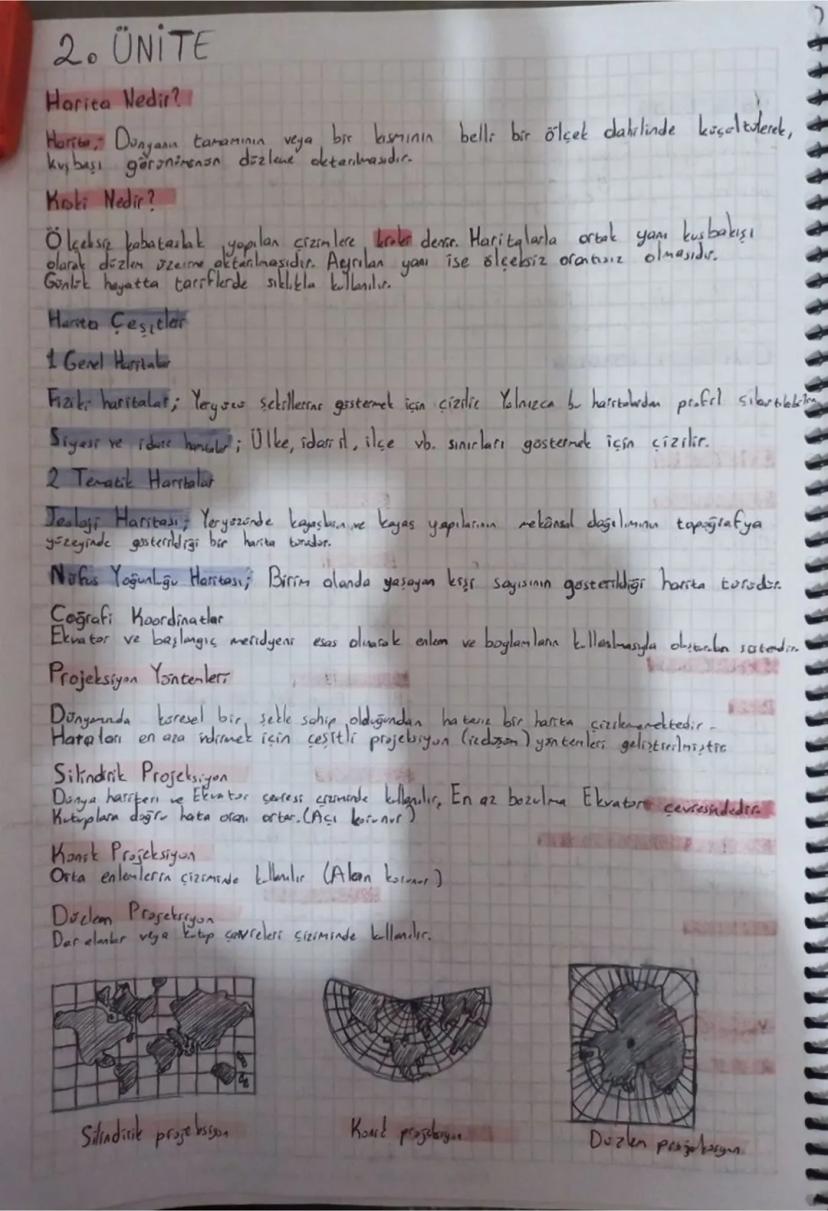 2. ÜNİTE
Harita Nedir?
Harita; Dünyanın tamamının veya bir kısmının belli bir ölçek dahilinde küçültülerek,
kuşbaşı görünümünün düzleme aktarılmasıdır.
Kroki Nedir?
Ölçeksiz kabataslak yapılan çizimlere kroki denir. Haritalarla ortak yanı kuşbakışı
olarak düzlem üzerine aktarılmasıdır. Ayrılan yanı ise ölçeksiz orantısız olmasıdır.
Günlük hayatta tariflerde sıklıkla kullanılır.
Harita Çeşitler
1 Genel Haritalar
Fiziki haritalar; Yeryüzü şekillerini göstermek için çizilir Yalnızca bu haritalardan profil çıkartılabilir
Siyasi ve idari haritalar; Ülke, idari il, ilçe vb. sınırları göstermek için çizilir.
2 Tematik Haritalar
Jeoloji Haritası; Yeryüzünde kayaçların ve kayaç yapılarının mekânsal dağılımının topoğrafya
yüzeyinde gösterildiği bir harita türüdür.
Nüfus Yoğunluğu Haritası; Birim alanda yaşayan kişi sayısının gösterildiği harita türüdür.
Coğrafi Koordinatlar
Ekvator ve başlangıç meridyeni esas alınarak enlem ve boylamların kullanılmasıyla oluşturulan sistemdir.
Projeksiyon Yöntemleri
Dünyamızda küresel bir şekle sahip olduğundan hatasız bir harita çizilememektedir.
Hataları en aza indirmek için çeşitli projeksiyon (izdüşüm) yöntemleri geliştirilmiştir
Silindirik Projeksiyon
Dünya haritası ve Ekvator çevresi çiziminde kullanılır, En az bozulma Ekvator çevresindedir.
Kutuplara doğru hata oranı artar. (Açı korunur)
Konik Projeksiyon
Orta enlemlerin çiziminde kullanılır (Alan korunur)
Düzlem Projeksiyon
Dar alanlar veya kutup çevreleri çiziminde kullanılır.
Silindirik projeksiyon
Konik projeksiyon
Düzlem projeksiyon